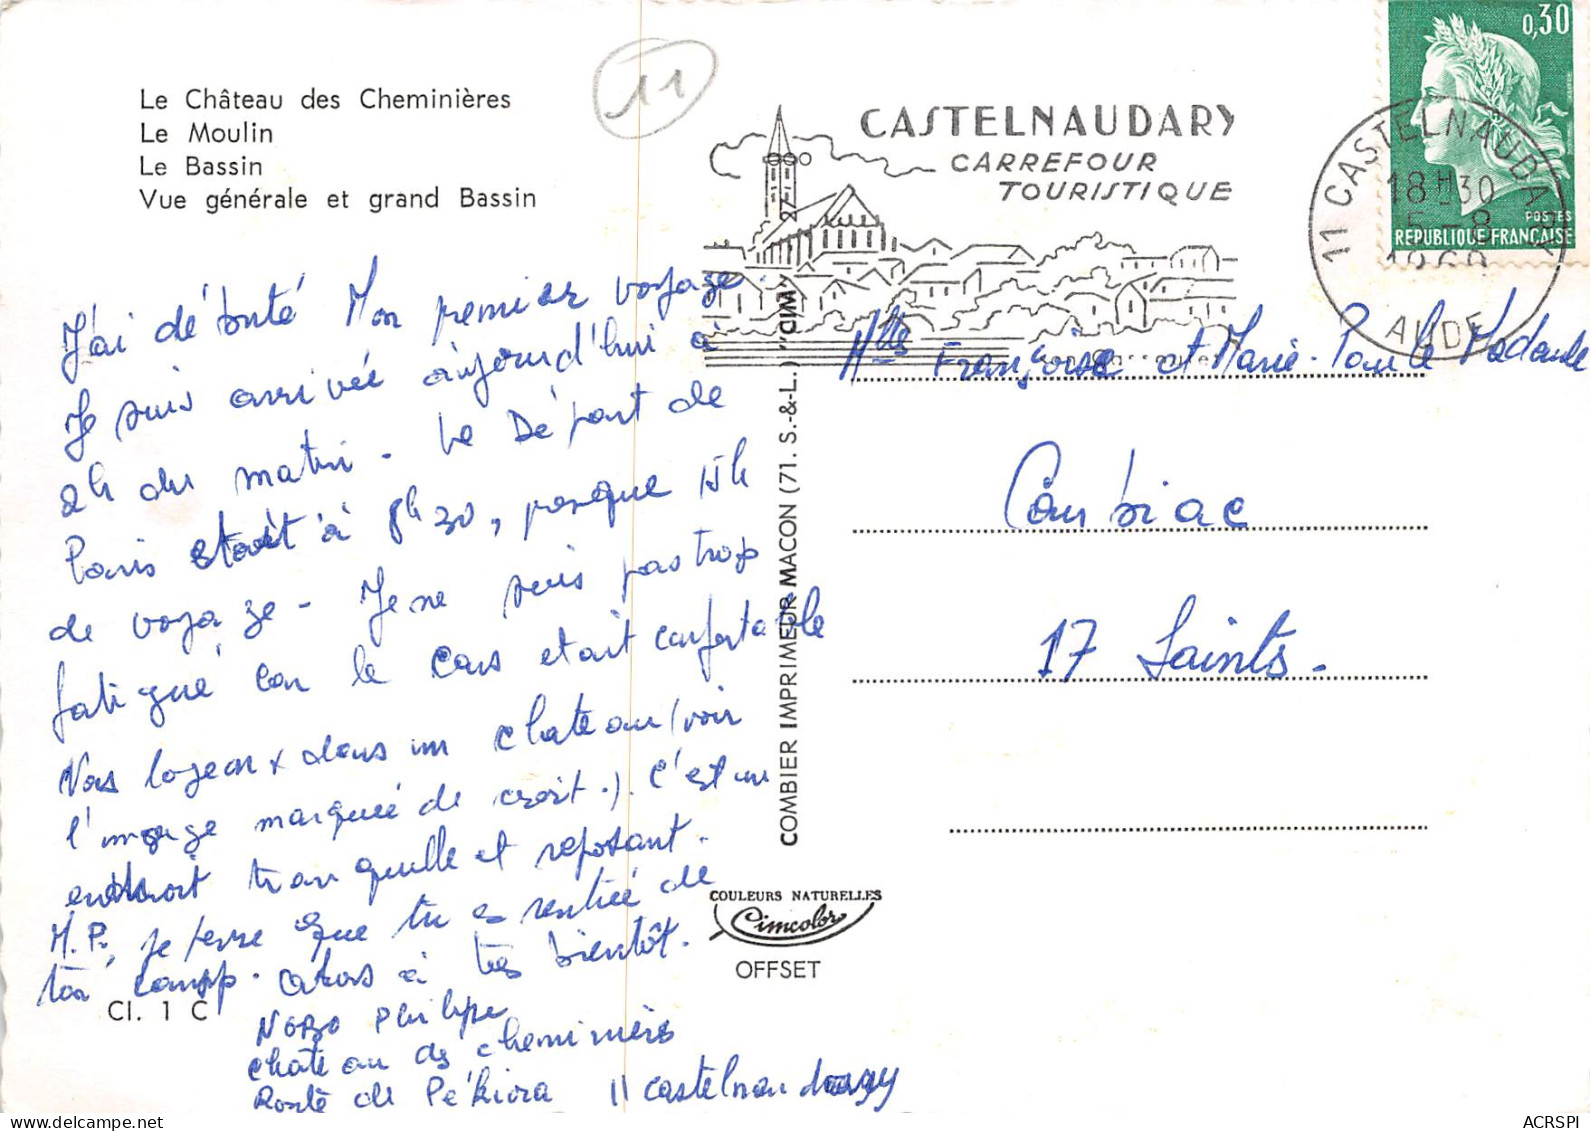 Le Château des Cheminières
Le Moulin
Le Bassin
Vue générale et grand Bassin
11
CASTELNAUDARY
CARREFOUR
TOURISTIQUE
0,30
POSTES
REPUBLIQUE FRANÇAISE
11 CASTELNAUDARY
18H30
5-8
1969
AUDE
J'ai dé buté Mon premier voyage.
Je suis arrivée aujourd'hui à
2h du matin. Le Départ de
Paris était à 8h30, presque 15h
de voyage - Je ne suis pas trop
fatigué car le Cars etait confortable
Nos logeons dans un chateau (voir
l'image marquée de croix.). C'est un
endroit tranquille et reposant.
M.P., je pense que tu es rentrée de
ton camp. Alors à très bientôt.
NOBO Philippe
chateau des cheminières
Route de Pékiora 11 castelnaudary
Mlle Françoise et Marie-Paule Madaule
Cambiac
17 Saints.
COMBIER IMPRIMEUR MACON (71. S.-&-L.) "CIM"
COULEURS NATURELLES
Cimcolor
OFFSET
Cl. 1 C
ACRSPI